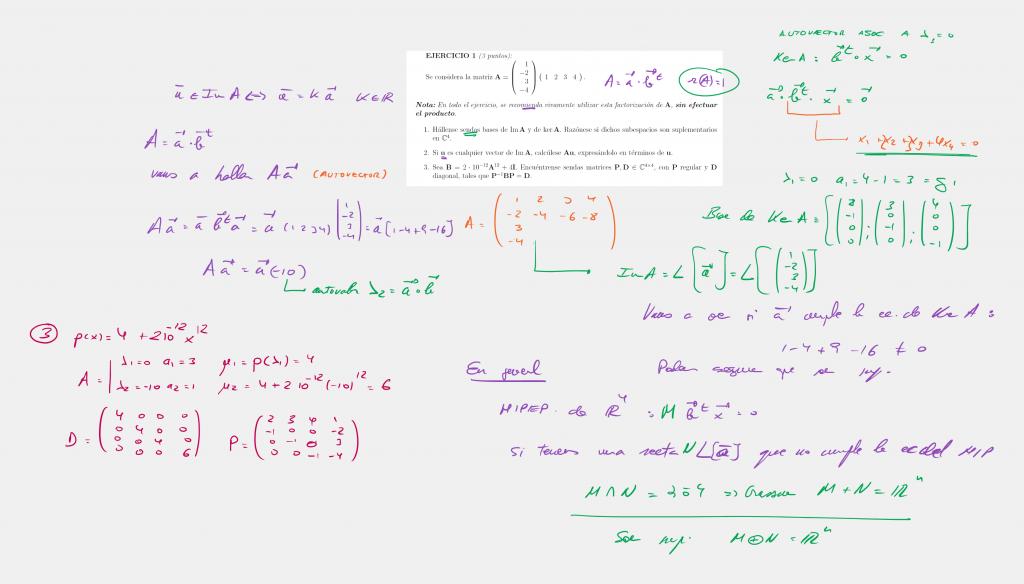 EJERCICIO 1 (3 puntos):
Se considera la matriz A = ( 1 -2 3 -4 ) ( 1 2 3 4 ).
A = a⃗ · b⃗ᵗ
r(A)=1
Nota: En todo el ejercicio, se recomienda vivamente utilizar esta factorización de A, sin efectuar
el producto.
1. Hállense sendas bases de Im A y de ker A. Razónese si dichos subespacios son suplementarios
en ℂ⁴.
2. Si u es cualquier vector de Im A, calcúlese Au, expresándolo en términos de u.
3. Sea B = 2 · 10⁻¹²A¹² + 4I. Encuéntrense sendas matrices P, D ∈ ℂ⁴ˣ⁴, con P regular y D
diagonal, tales que P⁻¹BP = D.
ū ∈ Im A ⟺ ū = K a⃗ K∈ℝ
A = a⃗ · b⃗ᵗ
vamos a hallar A a⃗ (AUTOVECTOR)
A a⃗ = a⃗ b⃗ᵗ a⃗ = a⃗ (1 2 3 4) ( 1 -2 3 -4 ) = a⃗ [1-4+9-16]
A a⃗ = a⃗ (-10)
autovalor λ₂ = a⃗ · b⃗
A = ( 1 2 3 4
-2 -4 -6 -8
3
-4 )
Im A = L [ a⃗ ] = L [ ( 1 -2 3 -4 ) ]
AUTOVECTOR ASOC A λ₁ = 0
Ker A : b⃗ᵗ · x⃗ = 0
a⃗ · b⃗ᵗ · x⃗ = 0⃗
x₁ + 2x₂ + 3x₃ + 4x₄ = 0
λ₁=0 a₁ = 4-1 = 3 = g₁
Base de Ker A = [ ( 2 -1 0 0 ) ; ( 3 0 -1 0 ) ; ( 4 0 0 -1 ) ]
Vamos a ver si a⃗ cumple la ec. de Ker A :
1-4+9-16 ≠ 0
Podemos asegurar que son sup.
③ p(x) = 4 + 2 10⁻¹² x¹²
A = | λ₁=0 a₁=3 μ₁ = p(λ₁) = 4
λ₂=-10 a₂=1 μ₂ = 4 + 2 10⁻¹² (-10)¹² = 6
D = ( 4 0 0 0
0 4 0 0
0 0 4 0
0 0 0 6 )
P = ( 2 3 4 1
-1 0 0 -2
0 -1 0 3
0 0 -1 -4 )
En general
HIPEP. de ℝ⁴ : M b⃗ᵗ x⃗ = 0
Si tenemos una recta N L[a⃗] que no cumple la ec del HIP
M ∩ N = {0⃗} ⇒ Grassman M + N = ℝⁿ
Son sup. M ⊕ N = ℝⁿ